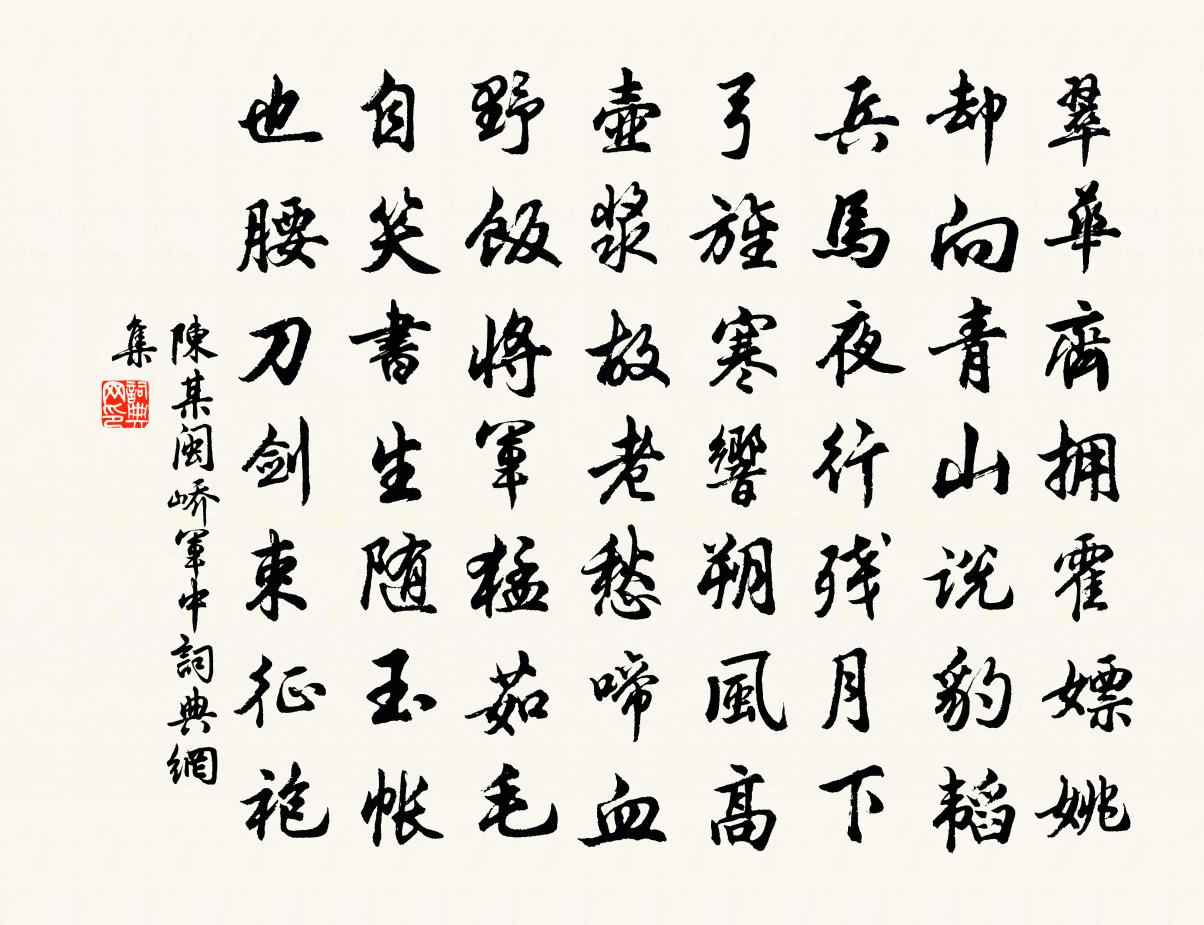 翠華齊拥霍嫖姚
却向青山说豹韬
兵馬夜行残月下
弓旌寒響朔風高
壺漿故老愁啼血
野飯將軍猛茹毛
自笑書生随玉帐
也腰刀剑束征袍
陳某闽峤軍中詞典網
集
詞典
网印